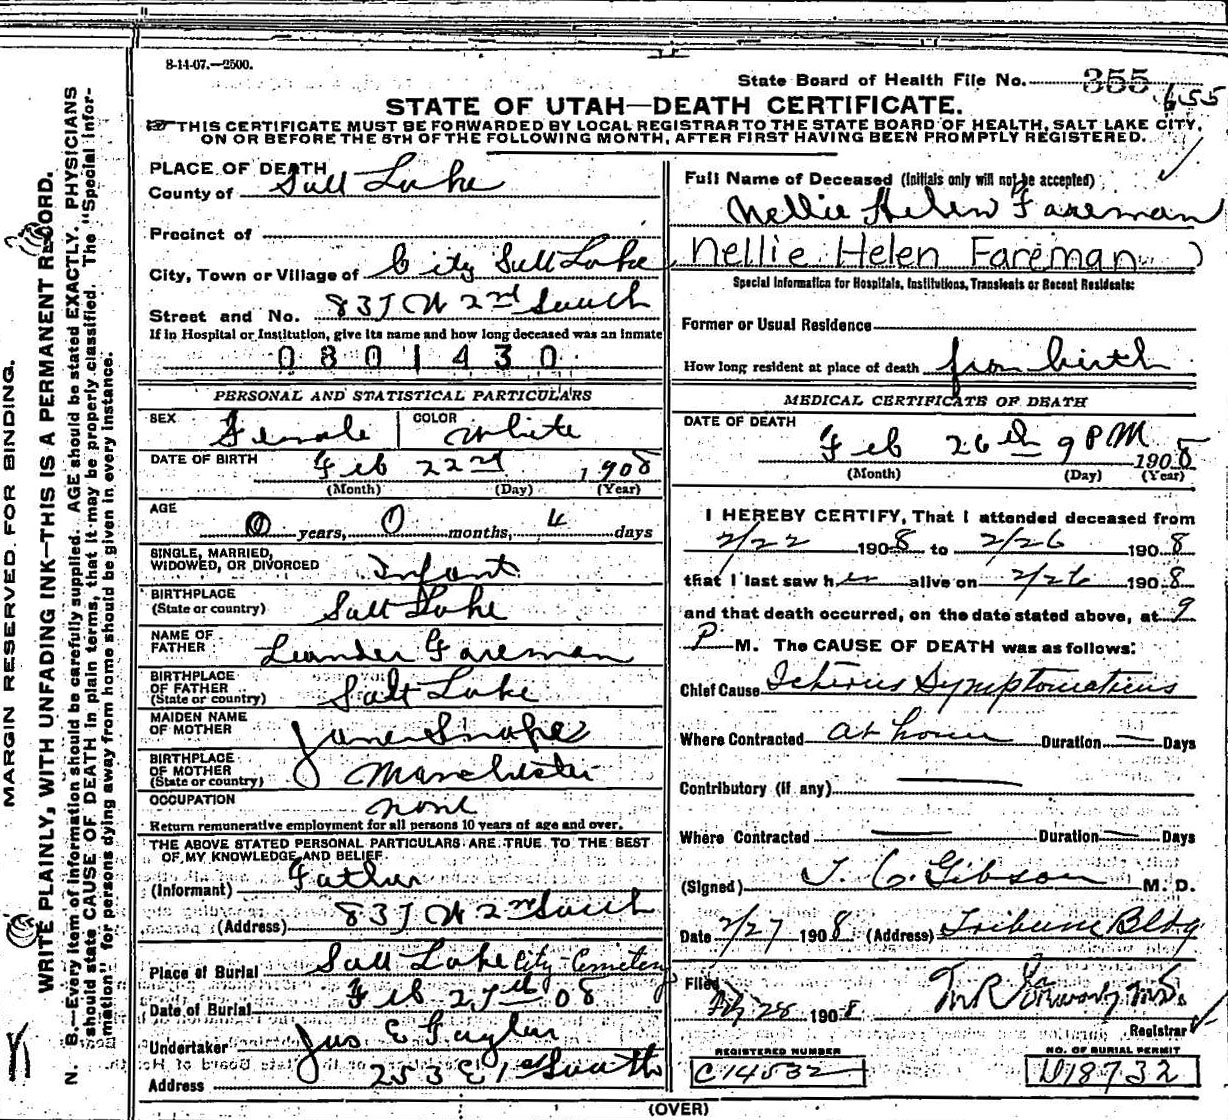 8-14-07.—2500.
State Board of Health File No. 355
655
STATE OF UTAH—DEATH CERTIFICATE.
THIS CERTIFICATE MUST BE FORWARDED BY LOCAL REGISTRAR TO THE STATE BOARD OF HEALTH, SALT LAKE CITY,
ON OR BEFORE THE 5TH OF THE FOLLOWING MONTH, AFTER FIRST HAVING BEEN PROMPTLY REGISTERED.
MARGIN RESERVED FOR BINDING.
WRITE PLAINLY, WITH UNFADING INK—THIS IS A PERMANENT RECORD.
N. B.—Every item of information should be carefully supplied. AGE should be stated EXACTLY. PHYSICIANS
should state CAUSE OF DEATH in plain terms, that it may be properly classified. The "Special Infor-
mation" for persons dying away from home should be given in every instance.
PLACE OF DEATH
County of Salt Lake
Precinct of
City, Town or Village of City Salt Lake
Street and No. W 2nd South
If in Hospital or Institution, give its name and how long deceased was an inmate
0 8 0 1 4 3 0
PERSONAL AND STATISTICAL PARTICULARS
SEX Female COLOR White
DATE OF BIRTH Feb 22nd 1908
(Month) (Day) (Year)
AGE
0 years, 0 months, 4 days
SINGLE, MARRIED,
WIDOWED, OR DIVORCED Infant
BIRTHPLACE
(State or country) Salt Lake
NAME OF
FATHER Leander Fareman
BIRTHPLACE
OF FATHER
(State or country) Salt Lake
MAIDEN NAME
OF MOTHER Jane Snape
BIRTHPLACE
OF MOTHER
(State or country) Manchester
OCCUPATION none
Return remunerative employment for all persons 10 years of age and over.
THE ABOVE STATED PERSONAL PARTICULARS ARE TRUE TO THE BEST
OF MY KNOWLEDGE AND BELIEF
(Informant) Father
(Address) W 2nd South
Place of Burial Salt Lake City Cemetery
Date of Burial Feb 27th 08
Undertaker Jos E Taylor
Address 253 E 1st South
Full Name of Deceased (Initials only will not be accepted)
Nellie Helen Fareman
Nellie Helen Fareman )
Special Information for Hospitals, Institutions, Transients or Recent Residents:
Former or Usual Residence
How long resident at place of death from birth
MEDICAL CERTIFICATE OF DEATH
DATE OF DEATH
Feb 26th 9 PM 1908
(Month) (Day) (Year)
I HEREBY CERTIFY, That I attended deceased from
2/22 1908 to 2/26 1908
that I last saw her alive on 2/26 1908
and that death occurred, on the date stated above, at 9
P M. The CAUSE OF DEATH was as follows:
Chief Cause Icterus Symptomaticus
Where Contracted at home Duration — Days
Contributory (if any) —
Where Contracted — Duration — Days
(Signed) T. C. Gibson M. D.
Date 2/27 1908 (Address) Tribune Bldg
Filed 28 1908 M.D.
Registrar
REGISTERED NUMBER
C14532
NO. OF BURIAL PERMIT
D18732
(OVER)